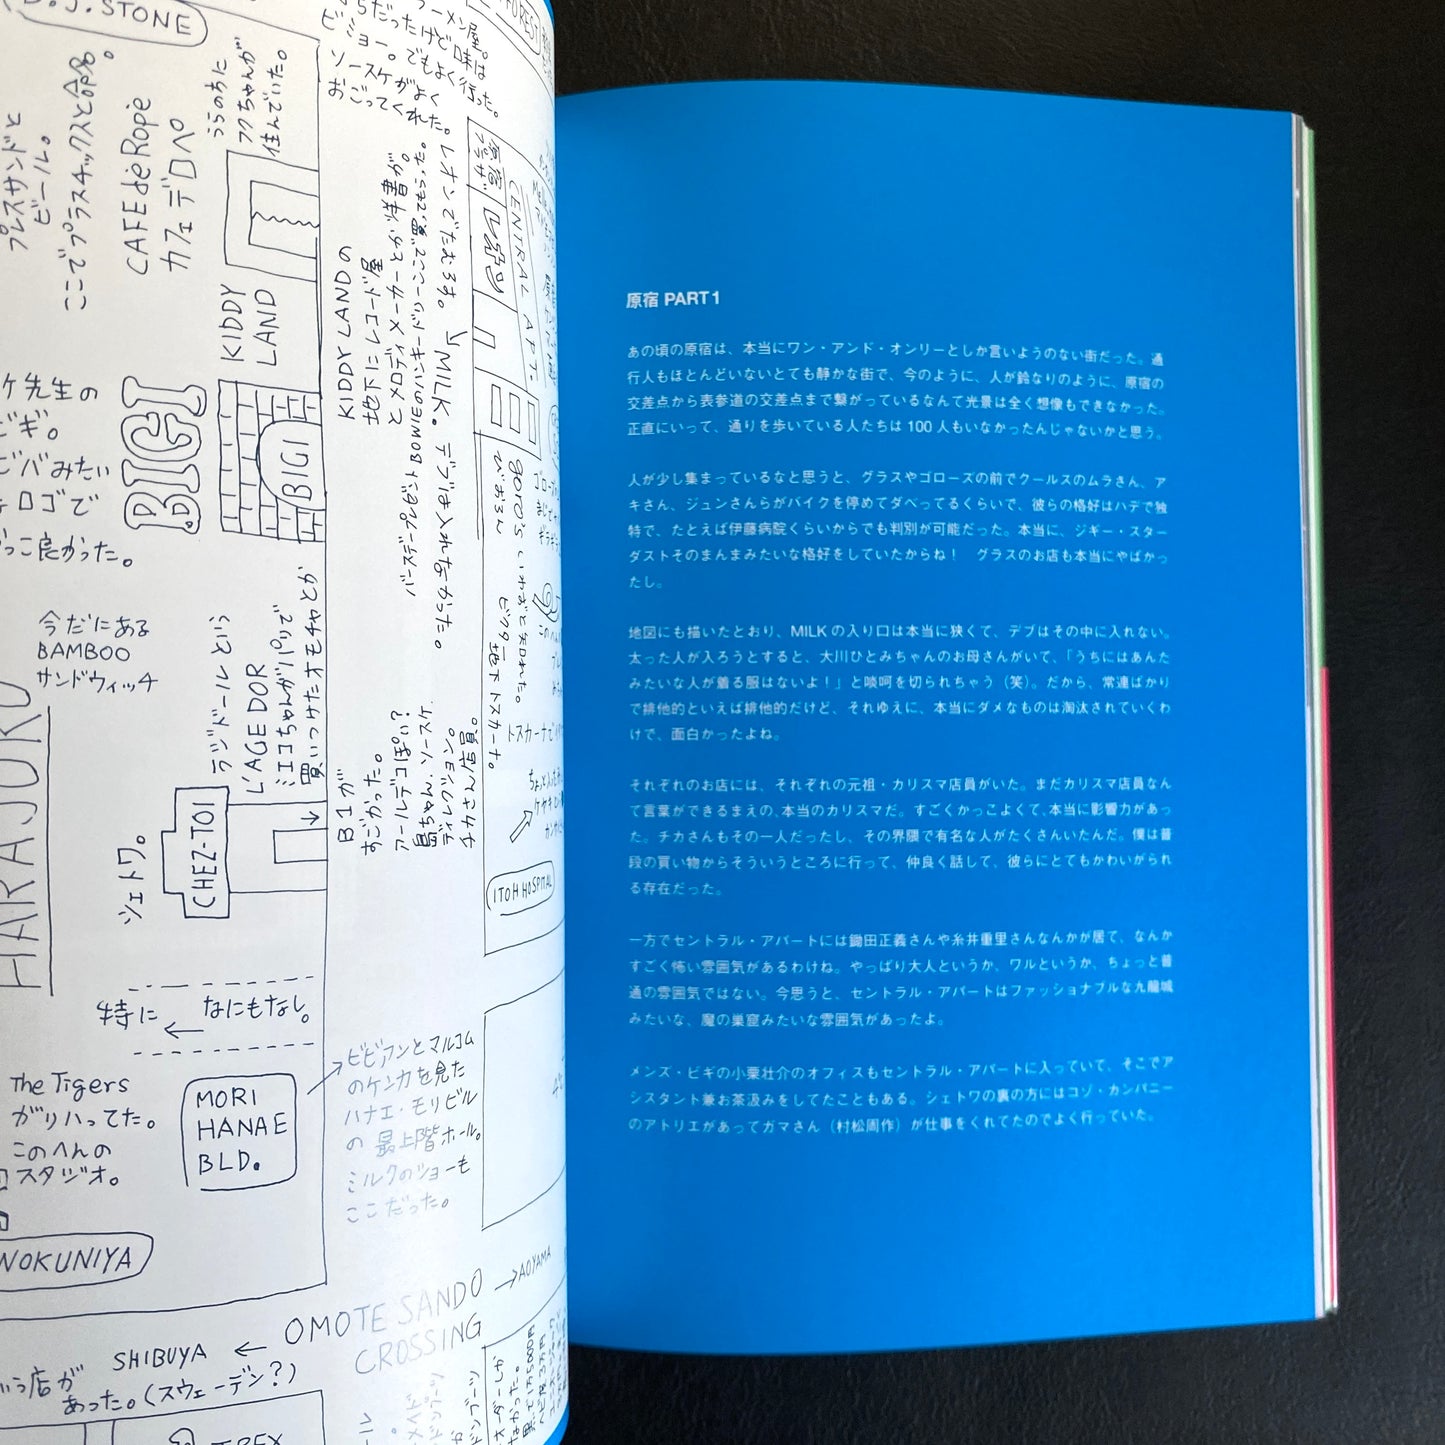 D.J.STONE
プレスサンドと
ビール。
ここでプラスチックスと命名。
CAFE de Ropé
カフェ デ ロペ
うらの方に
フクちゃんが
住んでいた。
ラーメン屋。
ビミョー。でもよく行った。
ソースケがよく
おごってくれた。
KIDDY
LAND
KIDDY LANDの
地下にレコード屋
とメロディメーカーとか洋書が。
レオンでたむろす。
MILK。デブは入れなかった。
原宿
プラザ
レオン
CENTRAL APT.
ケ先生の
ビギ。
ビバみたい
なロゴで
かっこ良かった。
BIGI
BIGI
goro's
びおろん
今だにある
BAMBOO
サンドウィッチ
HARAJUKU
ラジドールという
L'AGE DOR
ミエコちゃんがパリで
買いつけたオモチャとか
シェトワ。
CHEZ-TOI
B1が
すごかった。
アールデコぽい?
ビクター 地下 トスカーナ。
ITOH HOSPITAL
特に
なにもなし。
The Tigers
がリハってた。
このへんの
スタジオ。
MORI
HANAE
BLD.
ビビアンとマルコム
のケンカを見た
ハナエ・モリビル
の最上階ホール。
ミルクのショーも
ここだった。
NOKUNIYA
OMOTE SANDO
CROSSING
AOYAMA
SHIBUYA
いう店が
あった。(スウェーデン?)
T.REX
原宿 PART 1
あの頃の原宿は、本当にワン・アンド・オンリーとしか言いようのない街だった。通
行人もほとんどいないとても静かな街で、今のように、人が鈴なりのように、原宿の
交差点から表参道の交差点まで繋がっているなんて光景は全く想像もできなかった。
正直にいって、通りを歩いている人たちは 100 人もいなかったんじゃないかと思う。
人が少し集まっているなと思うと、グラスやゴローズの前でクールスのムラさん、ア
キさん、ジュンさんらがバイクを停めてダベってるくらいで、彼らの格好はハデで独
特で、たとえば伊藤病院くらいからでも判別が可能だった。本当に、ジギー・スター
ダストそのまんまみたいな格好をしていたからね！　グラスのお店も本当にやばかっ
たし。
地図にも描いたとおり、MILK の入り口は本当に狭くて、デブはその中に入れない。
太った人が入ろうとすると、大川ひとみちゃんのお母さんがいて、「うちにはあんた
みたいな人が着る服はないよ！」と啖呵を切られちゃう（笑）。だから、常連ばかり
で排他的といえば排他的だけど、それゆえに、本当にダメなものは淘汰されていくわ
けで、面白かったよね。
それぞれのお店には、それぞれの元祖・カリスマ店員がいた。まだカリスマ店員なん
て言葉ができるまえの、本当のカリスマだ。すごくかっこよくて、本当に影響力があっ
た。チカさんもその一人だったし、その界隈で有名な人がたくさんいたんだ。僕は普
段の買い物からそういうところに行って、仲良く話して、彼らにとてもかわいがられ
る存在だった。
一方でセントラル・アパートには鋤田正義さんや糸井重里さんなんかが居て、なんか
すごく怖い雰囲気があるわけね。やっぱり大人というか、ワルというか、ちょっと普
通の雰囲気ではない。今思うと、セントラル・アパートはファッショナブルな九龍城
みたいな、魔の巣窟みたいな雰囲気があったよ。
メンズ・ビギの小栗壮介のオフィスもセントラル・アパートに入っていて、そこでア
シスタント兼お茶汲みをしてたこともある。シェトワの裏の方にはコゾ・カンパニー
のアトリエがあってガマさん（村松周作）が仕事をくれてたのでよく行っていた。